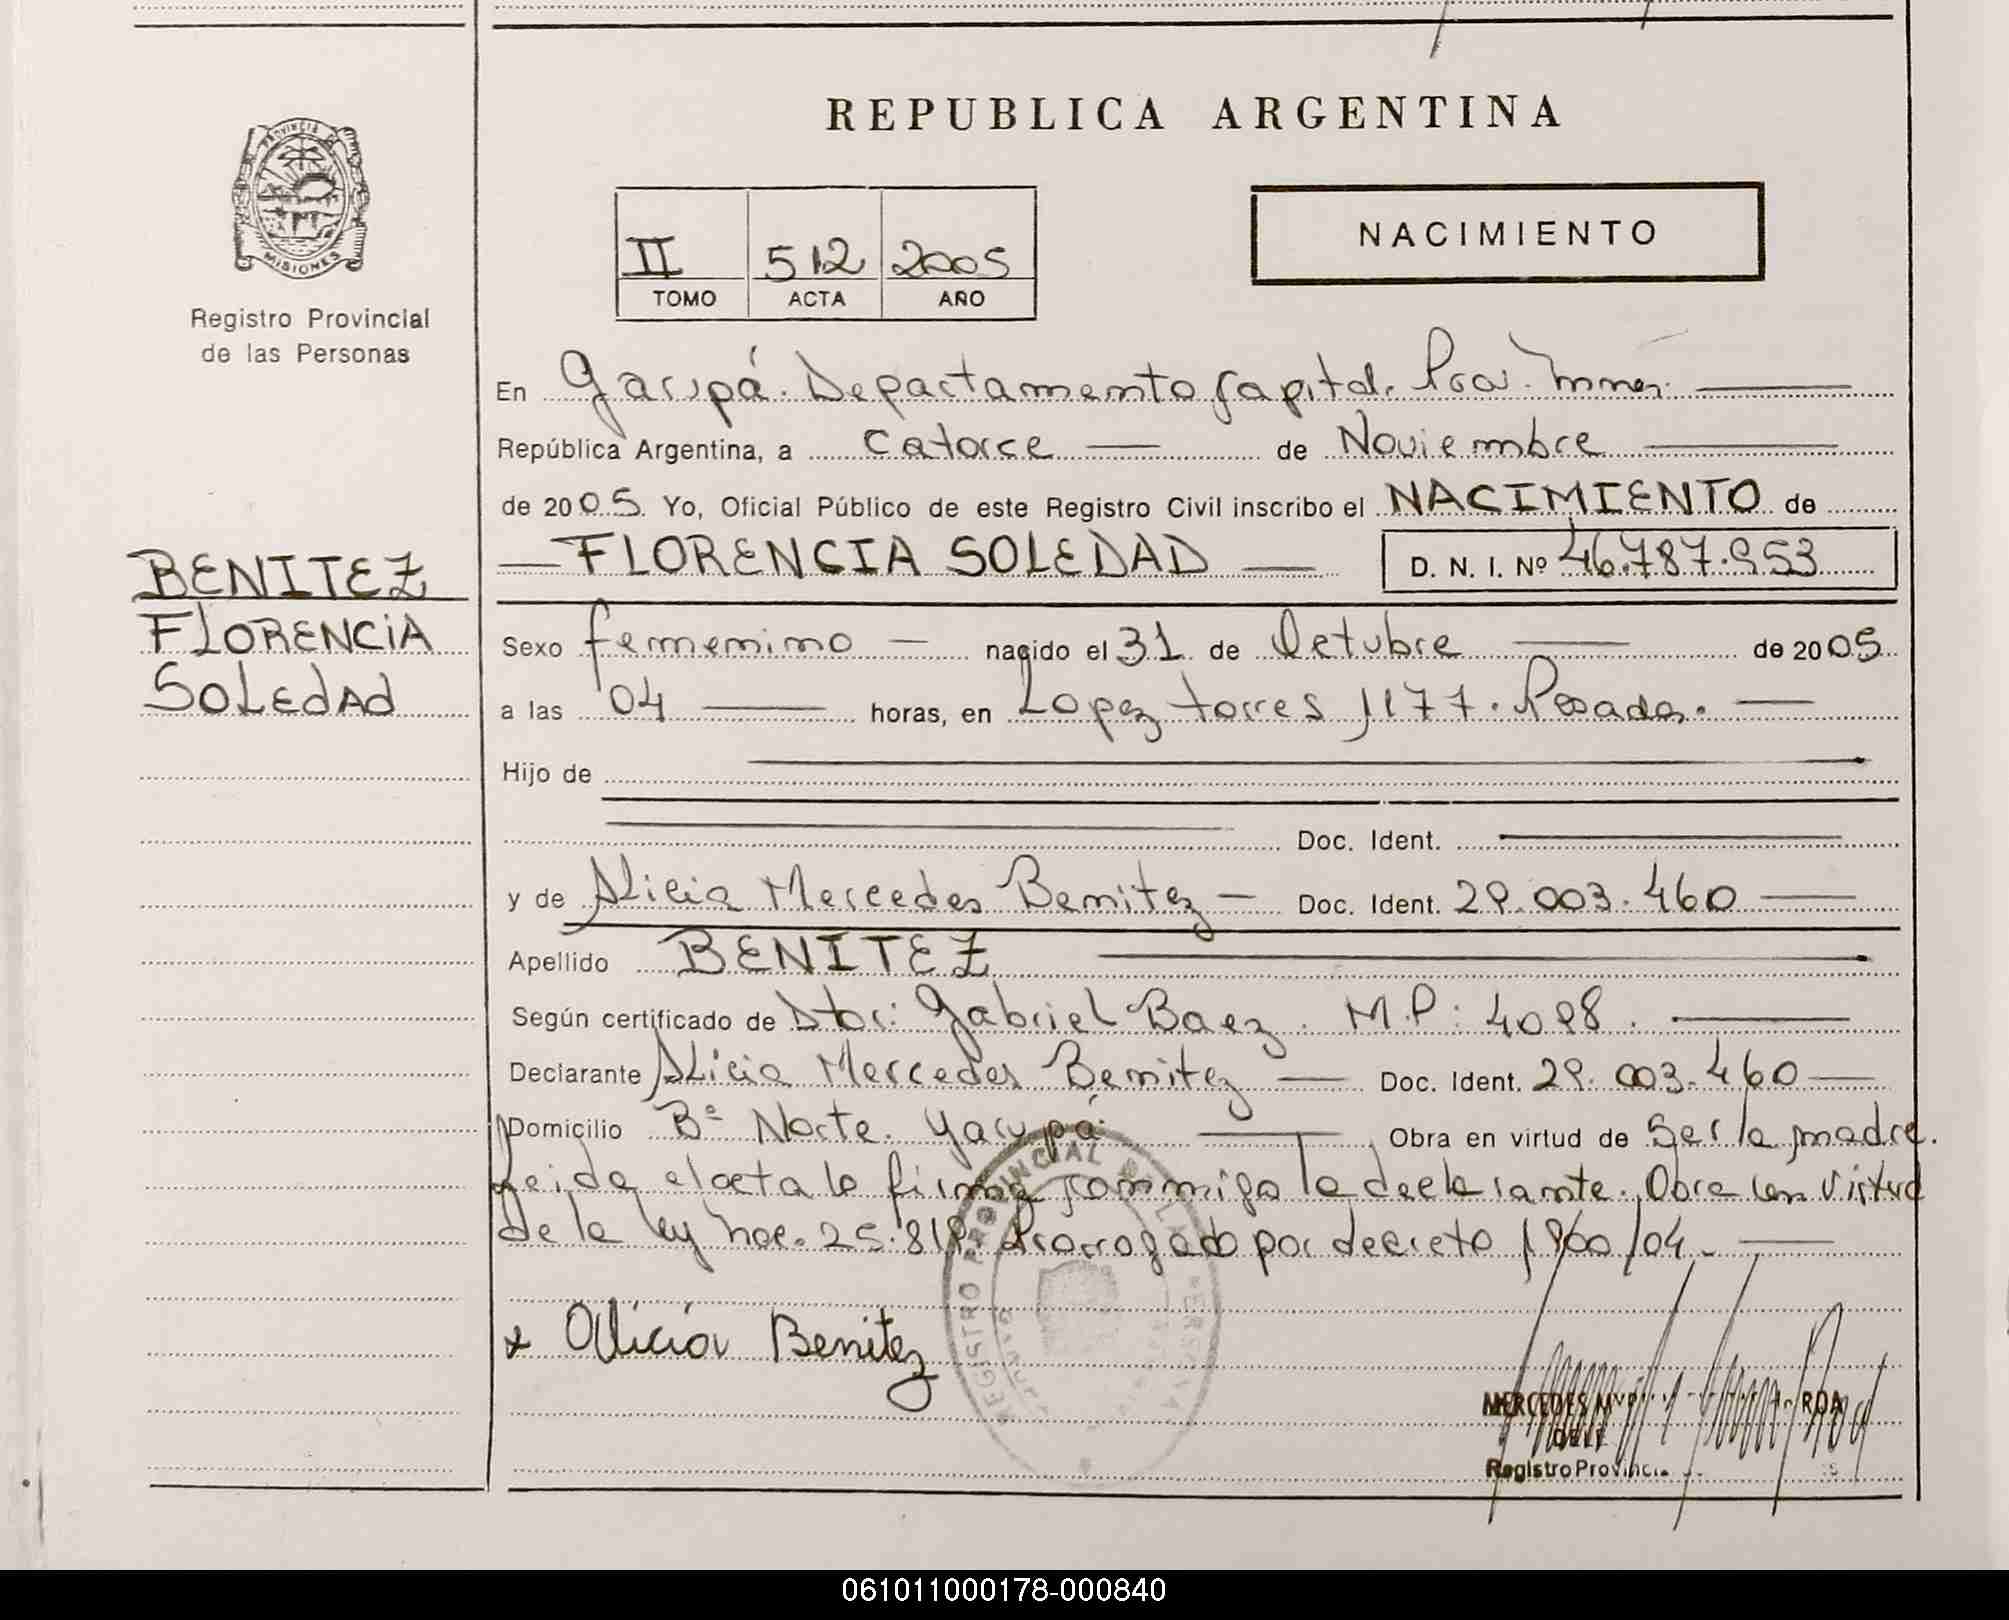 REPUBLICA ARGENTINA
PROVINCIA DE
MISIONES
Registro Provincial
de las Personas
II 512 2005
TOMO ACTA AÑO
NACIMIENTO
En Garupá. Departamento Capital.
República Argentina, a catorce de Noviembre
de 2005. Yo, Oficial Público de este Registro Civil inscribo el NACIMIENTO de
FLORENCIA SOLEDAD D. N. I. Nº 46.787.953
BENITEZ
FLORENCIA
SOLEDAD
Sexo femenino nacido el 31 de Octubre de 2005
a las 04 horas, en Lopez torres 1177. Posadas.
Hijo de
Doc. Ident.
y de Alicia Mercedes Benitez Doc. Ident. 29.003.460
Apellido BENITEZ
Según certificado de Dtor: Gabriel Baez. M.P: 4098.
Declarante Alicia Mercedes Benitez Doc. Ident. 29.003.460
Domicilio Bº Norte. Garupá Obra en virtud de Ser la madre.
Leida el acta la firma conmigo la declarante. Obra en virtud
de la ley nac. 25.819. Prorrogado por decreto 1960/04.
x Alicia Benitez
REGISTRO PROVINCIAL DE LAS PERSONAS
MERCEDES
Registro Provincial
061011000178-000840